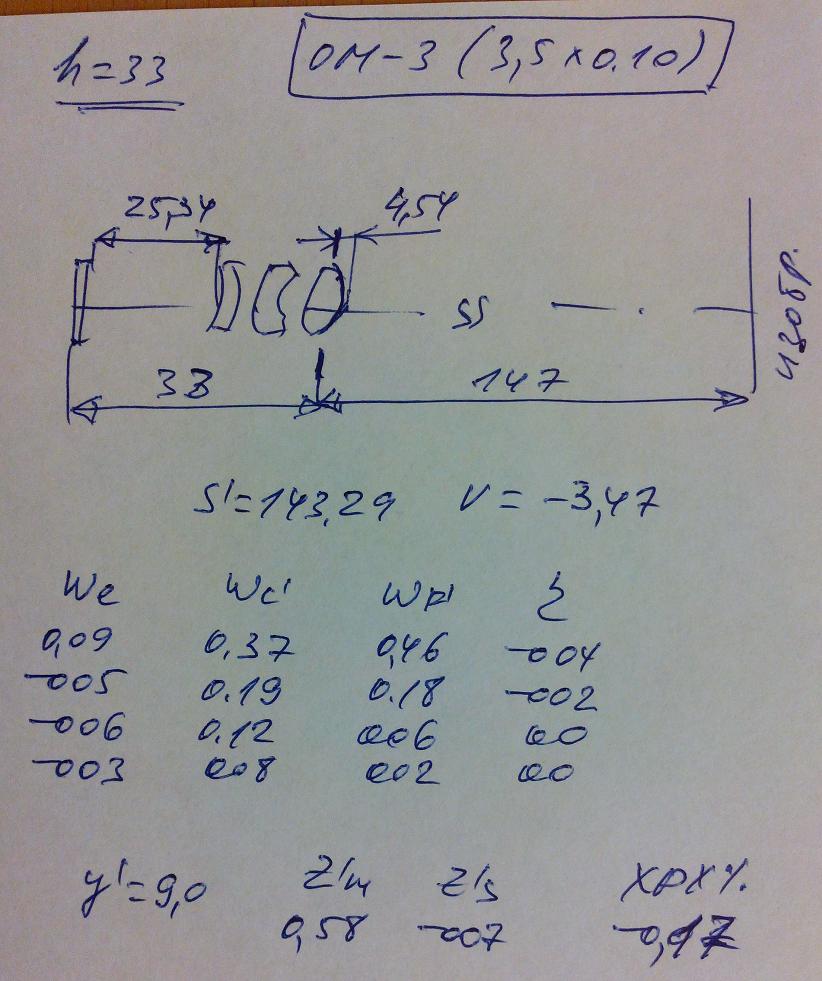 h=33
ОМ-3 (3,5×0.10)
25,34 4,54
изобр.
33 147
S'=143,29 V = -3,47
We Wc'
0,09 0,37 0,46 -004
-005 0.19 0.18 -002
-006 0.12 006 00
-003 008 002 00
y'=9,0 Z'm Z's ХРХ%
0,58 -007 -0,17